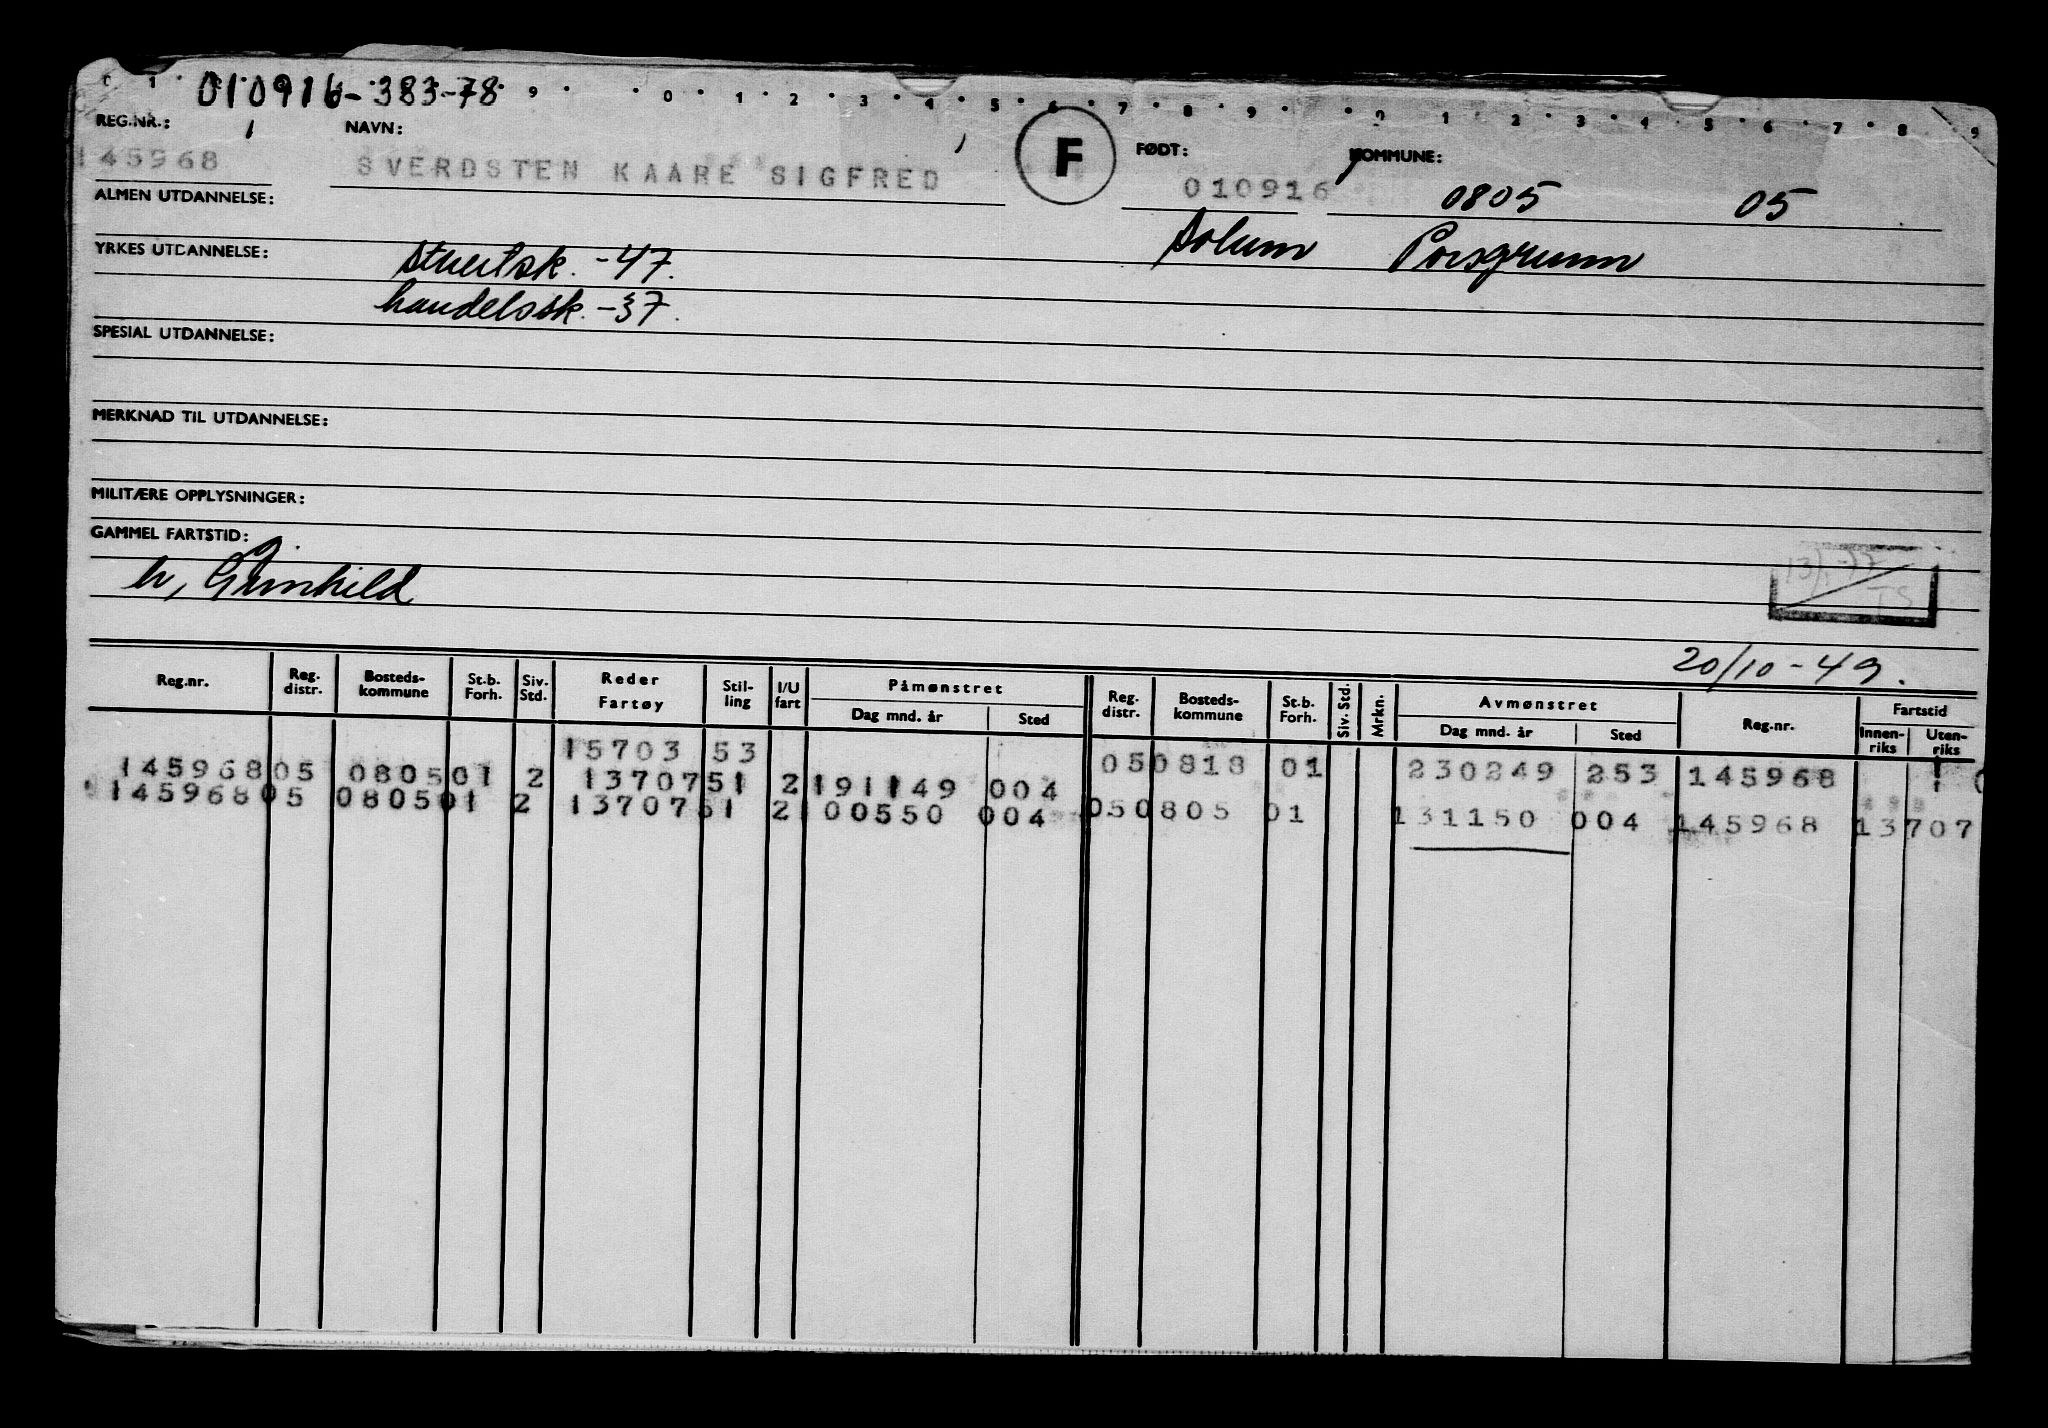 010916-383-78
0 1 9 0 1 2 3 4 5 6 7 8 9 0 1 2 3 4 5 6 7 8 9
REG.NR.: NAVN: F FØDT: KOMMUNE:
145968 SVERDSTEN KAARE SIGFRED 010916 0805 05
ALMEN UTDANNELSE: Solum Porsgrunn
YRKES UTDANNELSE: stuertsk. -47.
handelssk. -37.
SPESIAL UTDANNELSE:
MERKNAD TIL UTDANNELSE:
MILITÆRE OPPLYSNINGER:
GAMMEL FARTSTID:
g.
h, Gunhild
TS
20/10-49.
Reg.nr. Reg. distr. Bosteds-kommune St.b. Forh. Siv. Std. Reder Fartøy Stil-ling I/U fart Påmønstret Dag mnd. år Sted Reg. distr. Bosteds-kommune St.b. Forh. Siv. Std. Mrkn. Avmønstret Dag mnd. år Sted Reg.nr. Fartstid Innen-riks Uten-riks
15703 53 05 0818 01 230249 253 145968 1
145968 05 0805 01 2 13707 51 2 191149 004
145968 05 0805 01 2 13707 51 2 100550 004 05 0805 01 131150 004 145968 13707